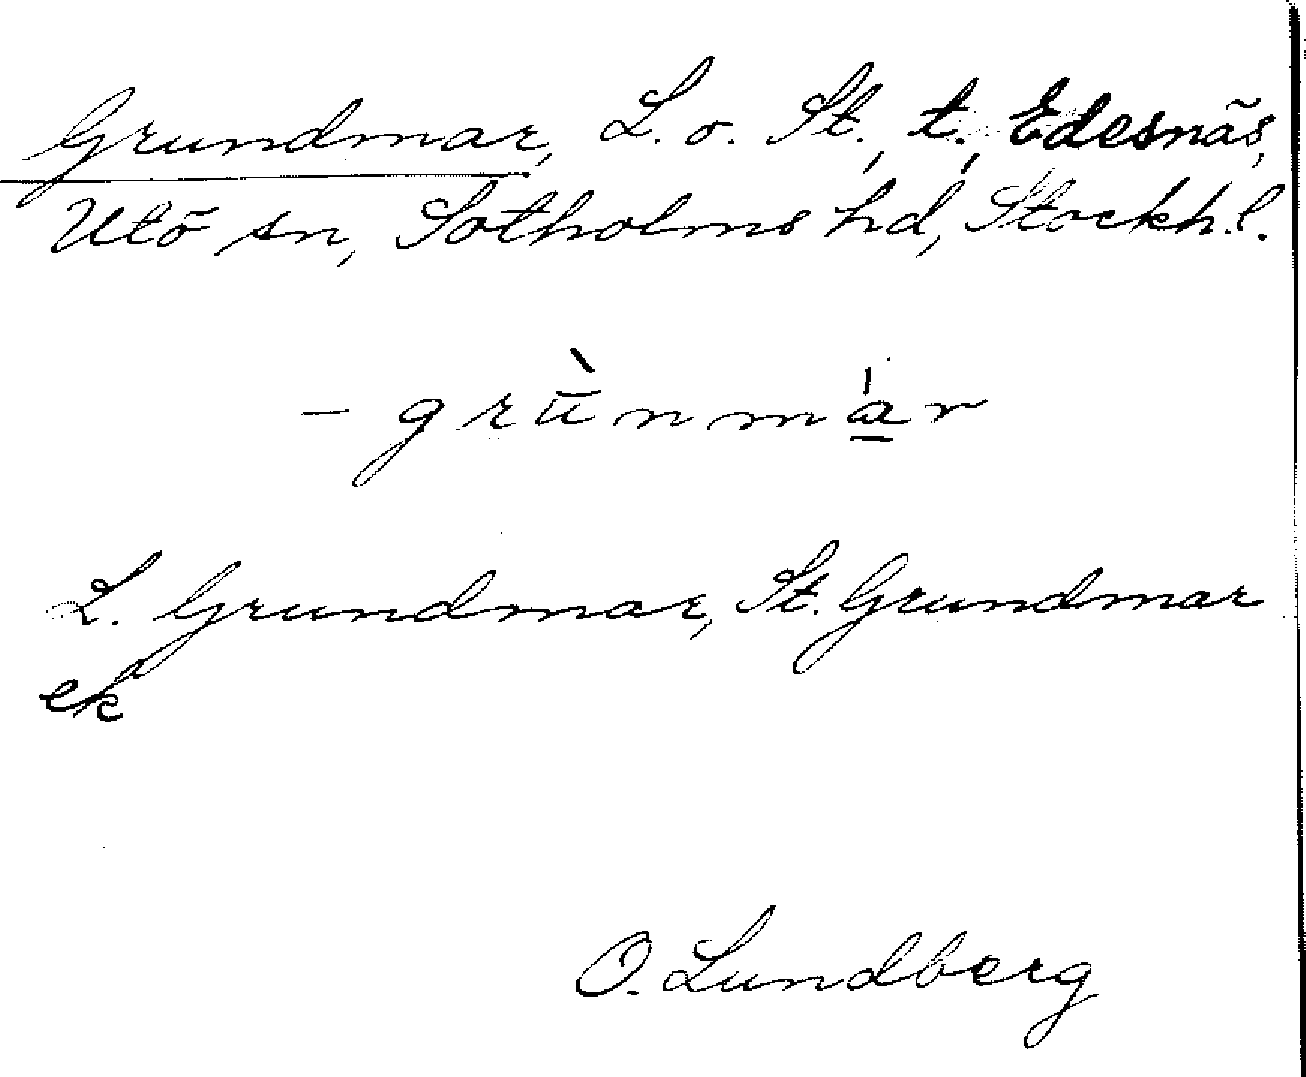 Grundmar, L. o. St., t., Edesnäs,
Utö sn, Sotholms hd, Stockh. l.
– grù̄nmá̱r
L. Grundmar, St. Grundmar
ek
O. Lundberg